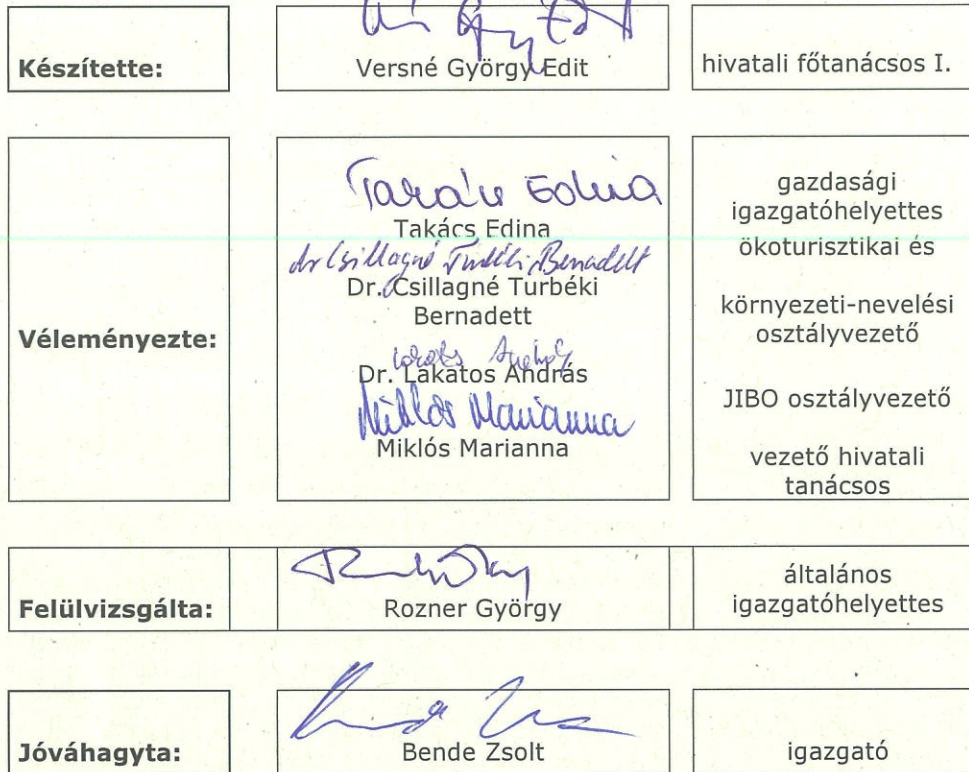 Készítette:
Versné György Edit
hivatali főtanácsos I.
Véleményezte:
Takács Edina
Takács Edina
dr Csillagné Turbéki Bernadett
Dr. Csillagné Turbéki
Bernadett
Dr. Lakatos András
Miklós Marianna
Miklós Marianna
gazdasági
igazgatóhelyettes
ökoturisztikai és
környezeti-nevelési
osztályvezető
JIBO osztályvezető
vezető hivatali
tanácsos
Felülvizsgálta:
Rozner György
általános
igazgatóhelyettes
Jóváhagyta:
Bende Zsolt
igazgató